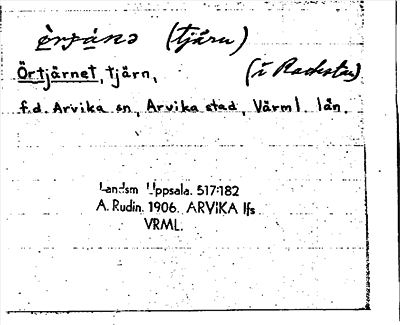 (tjärn)
Örtjärnet, tjärn, (i Rackstad)
f.d. Arvika sn, Arvika stad, Värml. län.
Landsm Uppsala. 517:182
A. Rudin. 1906. ARVIKA lfs
VRML.